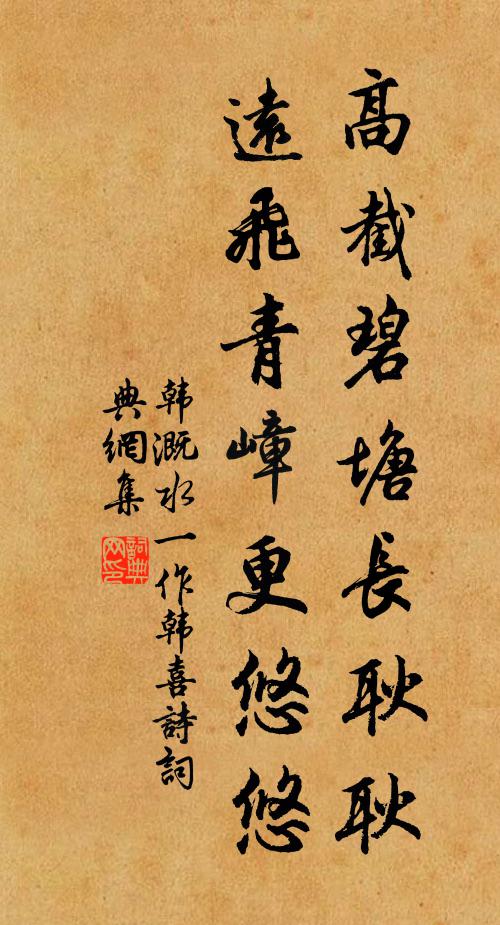 高截碧塘長耿耿
遠飛青嶂更悠悠
韩溉水一作韩喜詩詞
典網集
詞典
网印